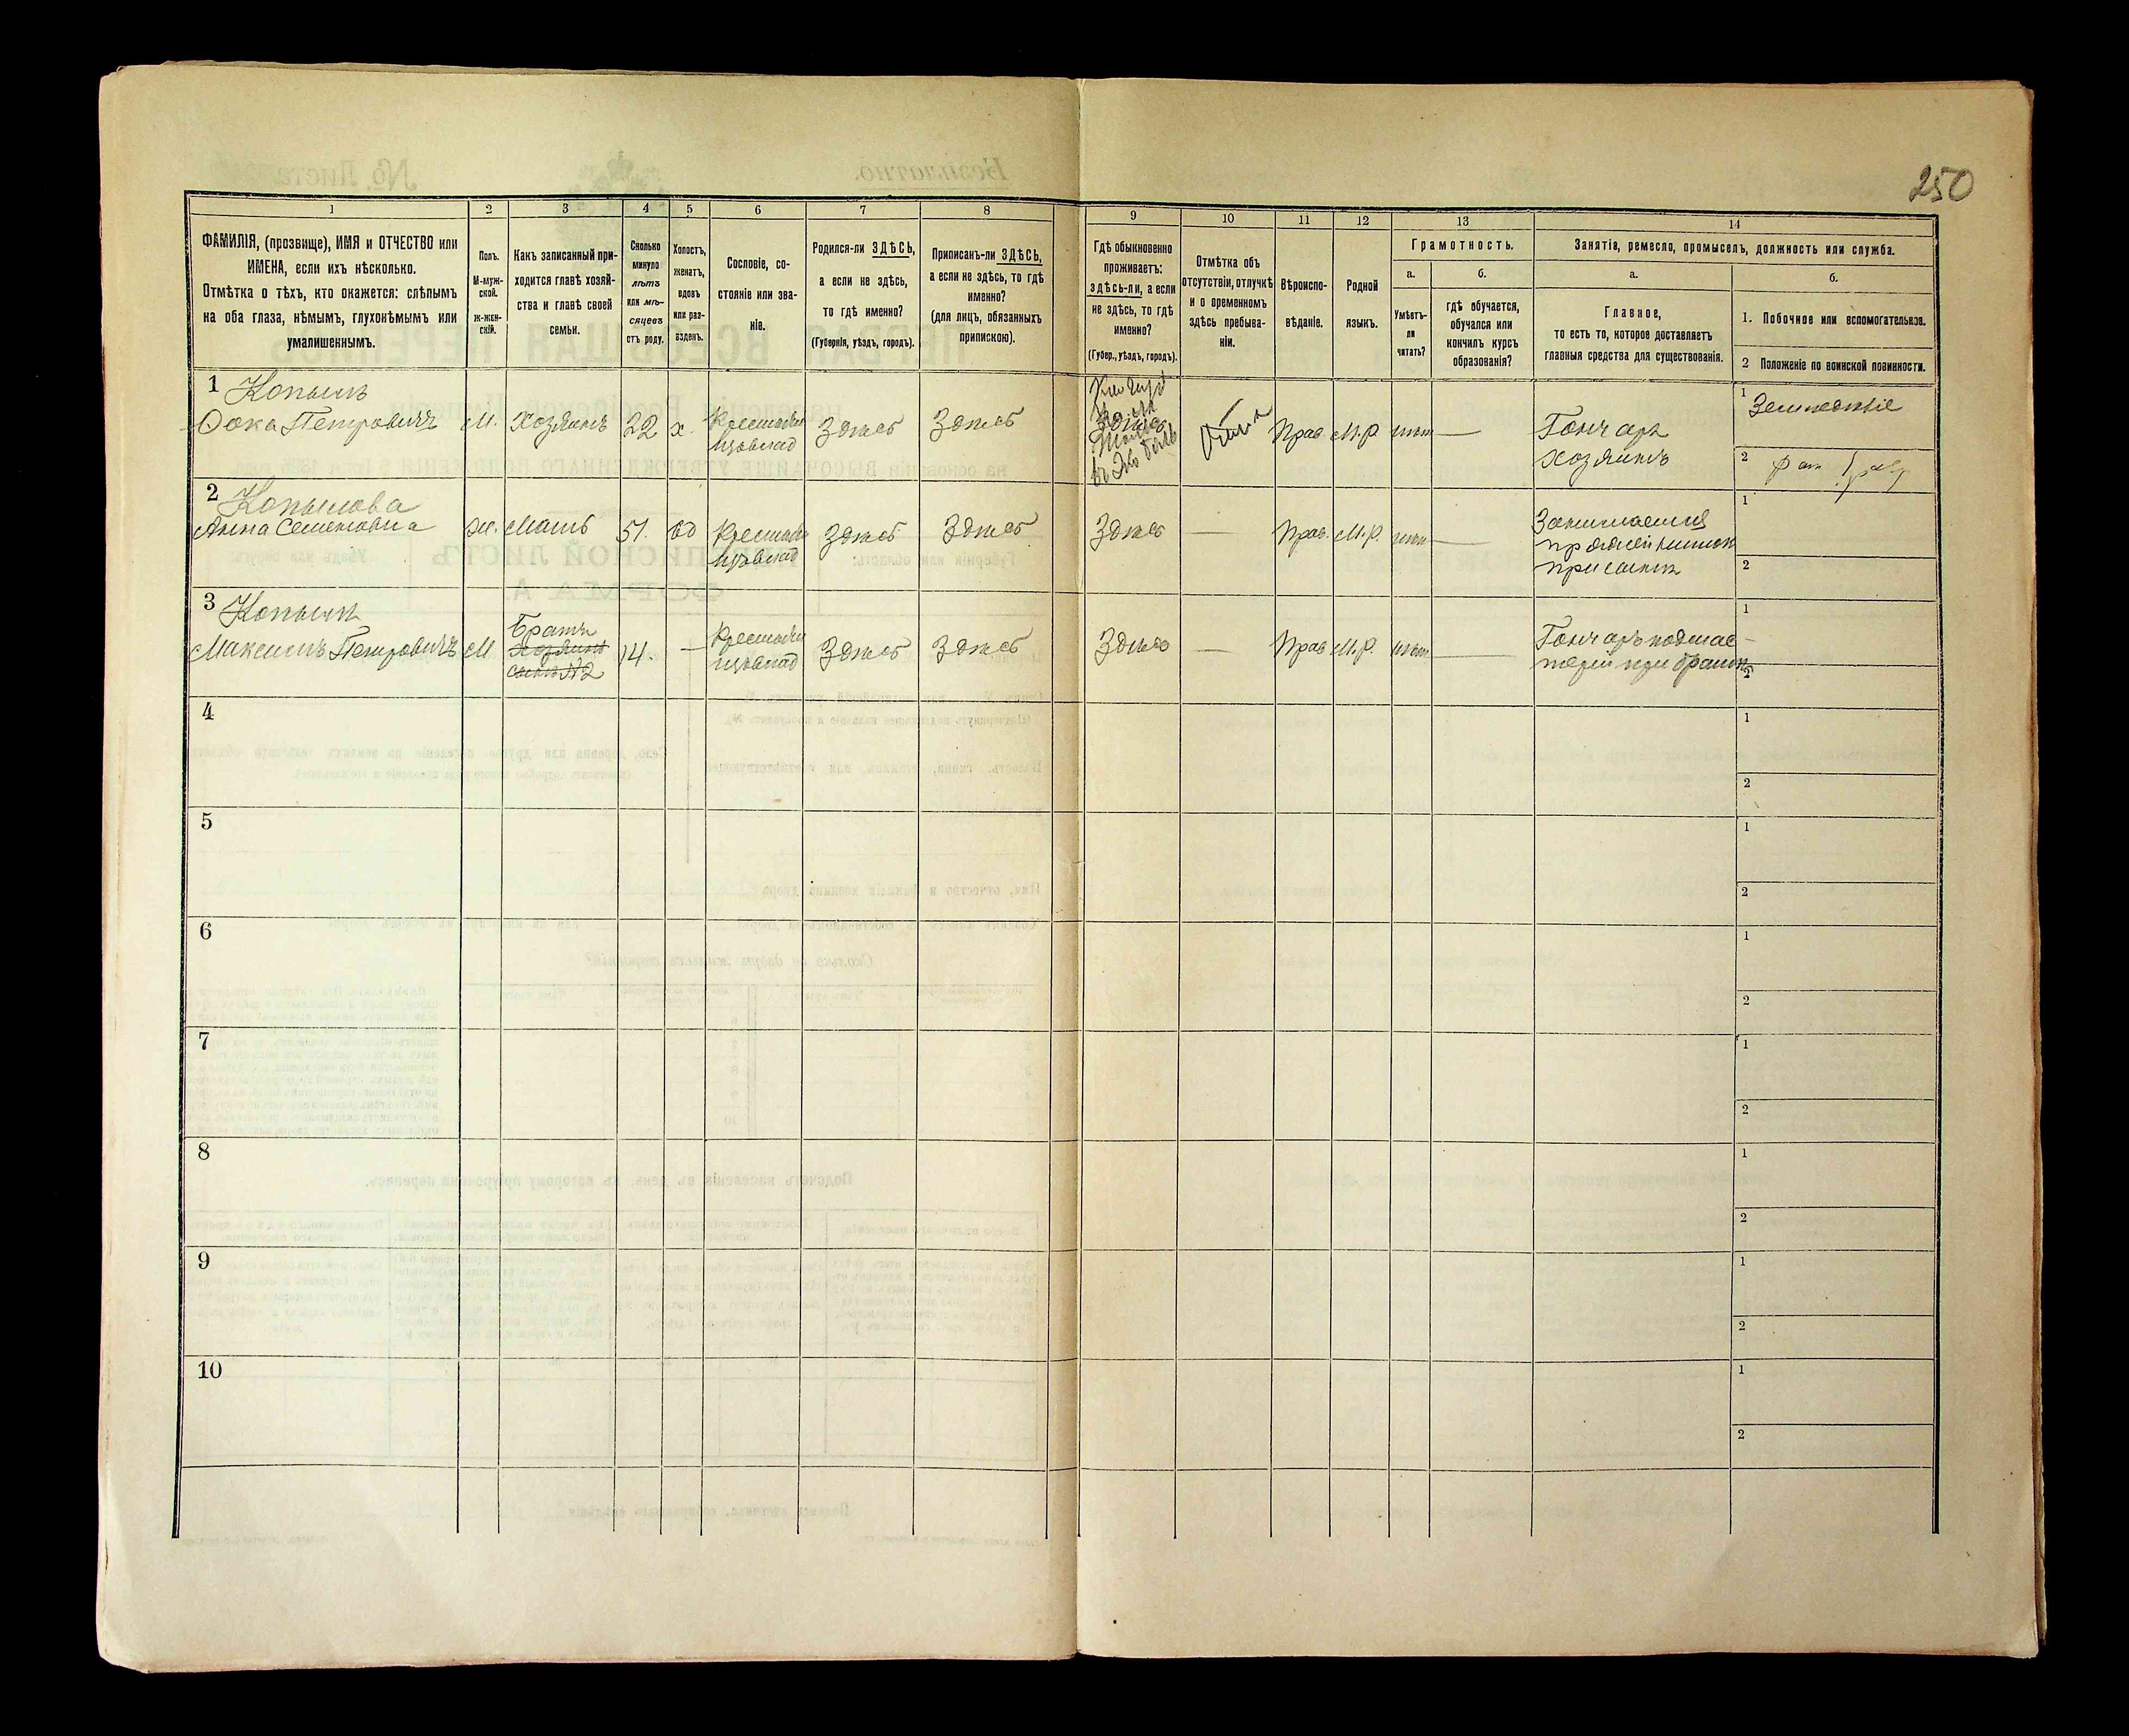 250
1 2 3 4 5 6 7 8 9 10 11 12 13 14
ФАМИЛІЯ, (прозвище), ИМЯ и ОТЧЕСТВО или
ИМЕНА, если ихъ нѣсколько.
Отмѣтка о тѣхъ, кто окажется: слѣпымъ
на оба глаза, нѣмымъ, глухонѣмымъ или
умалишеннымъ.
Полъ.
М-муж-
ской.
ж-жен-
скій.
Какъ записанный при-
ходится главѣ хозяй-
ства и главѣ своей
семьи.
Сколько
минуло
лѣтъ
или мѣ-
сяцевъ
отъ роду.
Холостъ,
женатъ,
вдовъ
или раз-
веденъ.
Сословіе, со-
стояніе или зва-
ніе.
Родился-ли ЗДѢСЬ,
а если не здѣсь,
то гдѣ именно?
(Губернія, уѣздъ, городъ).
Приписанъ-ли ЗДѢСЬ,
а если не здѣсь, то гдѣ
именно?
(для лицъ, обязанныхъ
припискою).
Гдѣ обыкновенно
проживаетъ:
здѣсь-ли, а если
не здѣсь, то гдѣ
именно?
(Губер., уѣздъ, городъ).
Отмѣтка объ
отсутствіи, отлучкѣ
и о временномъ
здѣсь пребыва-
ніи.
Вѣроиспо-
вѣданіе.
Родной
языкъ.
Грамотность.
а.
Умѣетъ-
ли
читать?
б.
гдѣ обучается,
обучался или
кончилъ курсъ
образованія?
Занятіе, ремесло, промыселъ, должность или служба.
а.
Главное,
то есть то, которое доставляетъ
главныя средства для существованія.
б.
1. Побочное или вспомогательное.
2 Положеніе по воинской повинности.
1 Копылъ
Фока Петровичъ М. Хозяинъ 22 х. Крестьян Здѣсь Здѣсь Прав М.Р. нѣт — Гончаръ
хозяинъ
1 Земледѣліе
2
2 Копылова
Анна Семеновна ж. Мать 51. вд Крестьян Здѣсь Здѣсь Здѣсь — Прав. М.р. нѣт — Занимается
пряжей нитокъ
при сынѣ
1
2
3 Копылъ
Максимъ Петровичъ М Братъ 14. — Крестьян Здѣсь Здѣсь Здѣсь — Прав М.Р. нѣт —
хозяина
сынъ №2
Гончаръ подмас-
терій при братѣ
1
2
4 1
2
5 1
2
6 1
2
7 1
2
8 1
2
9 1
2
10 1
2